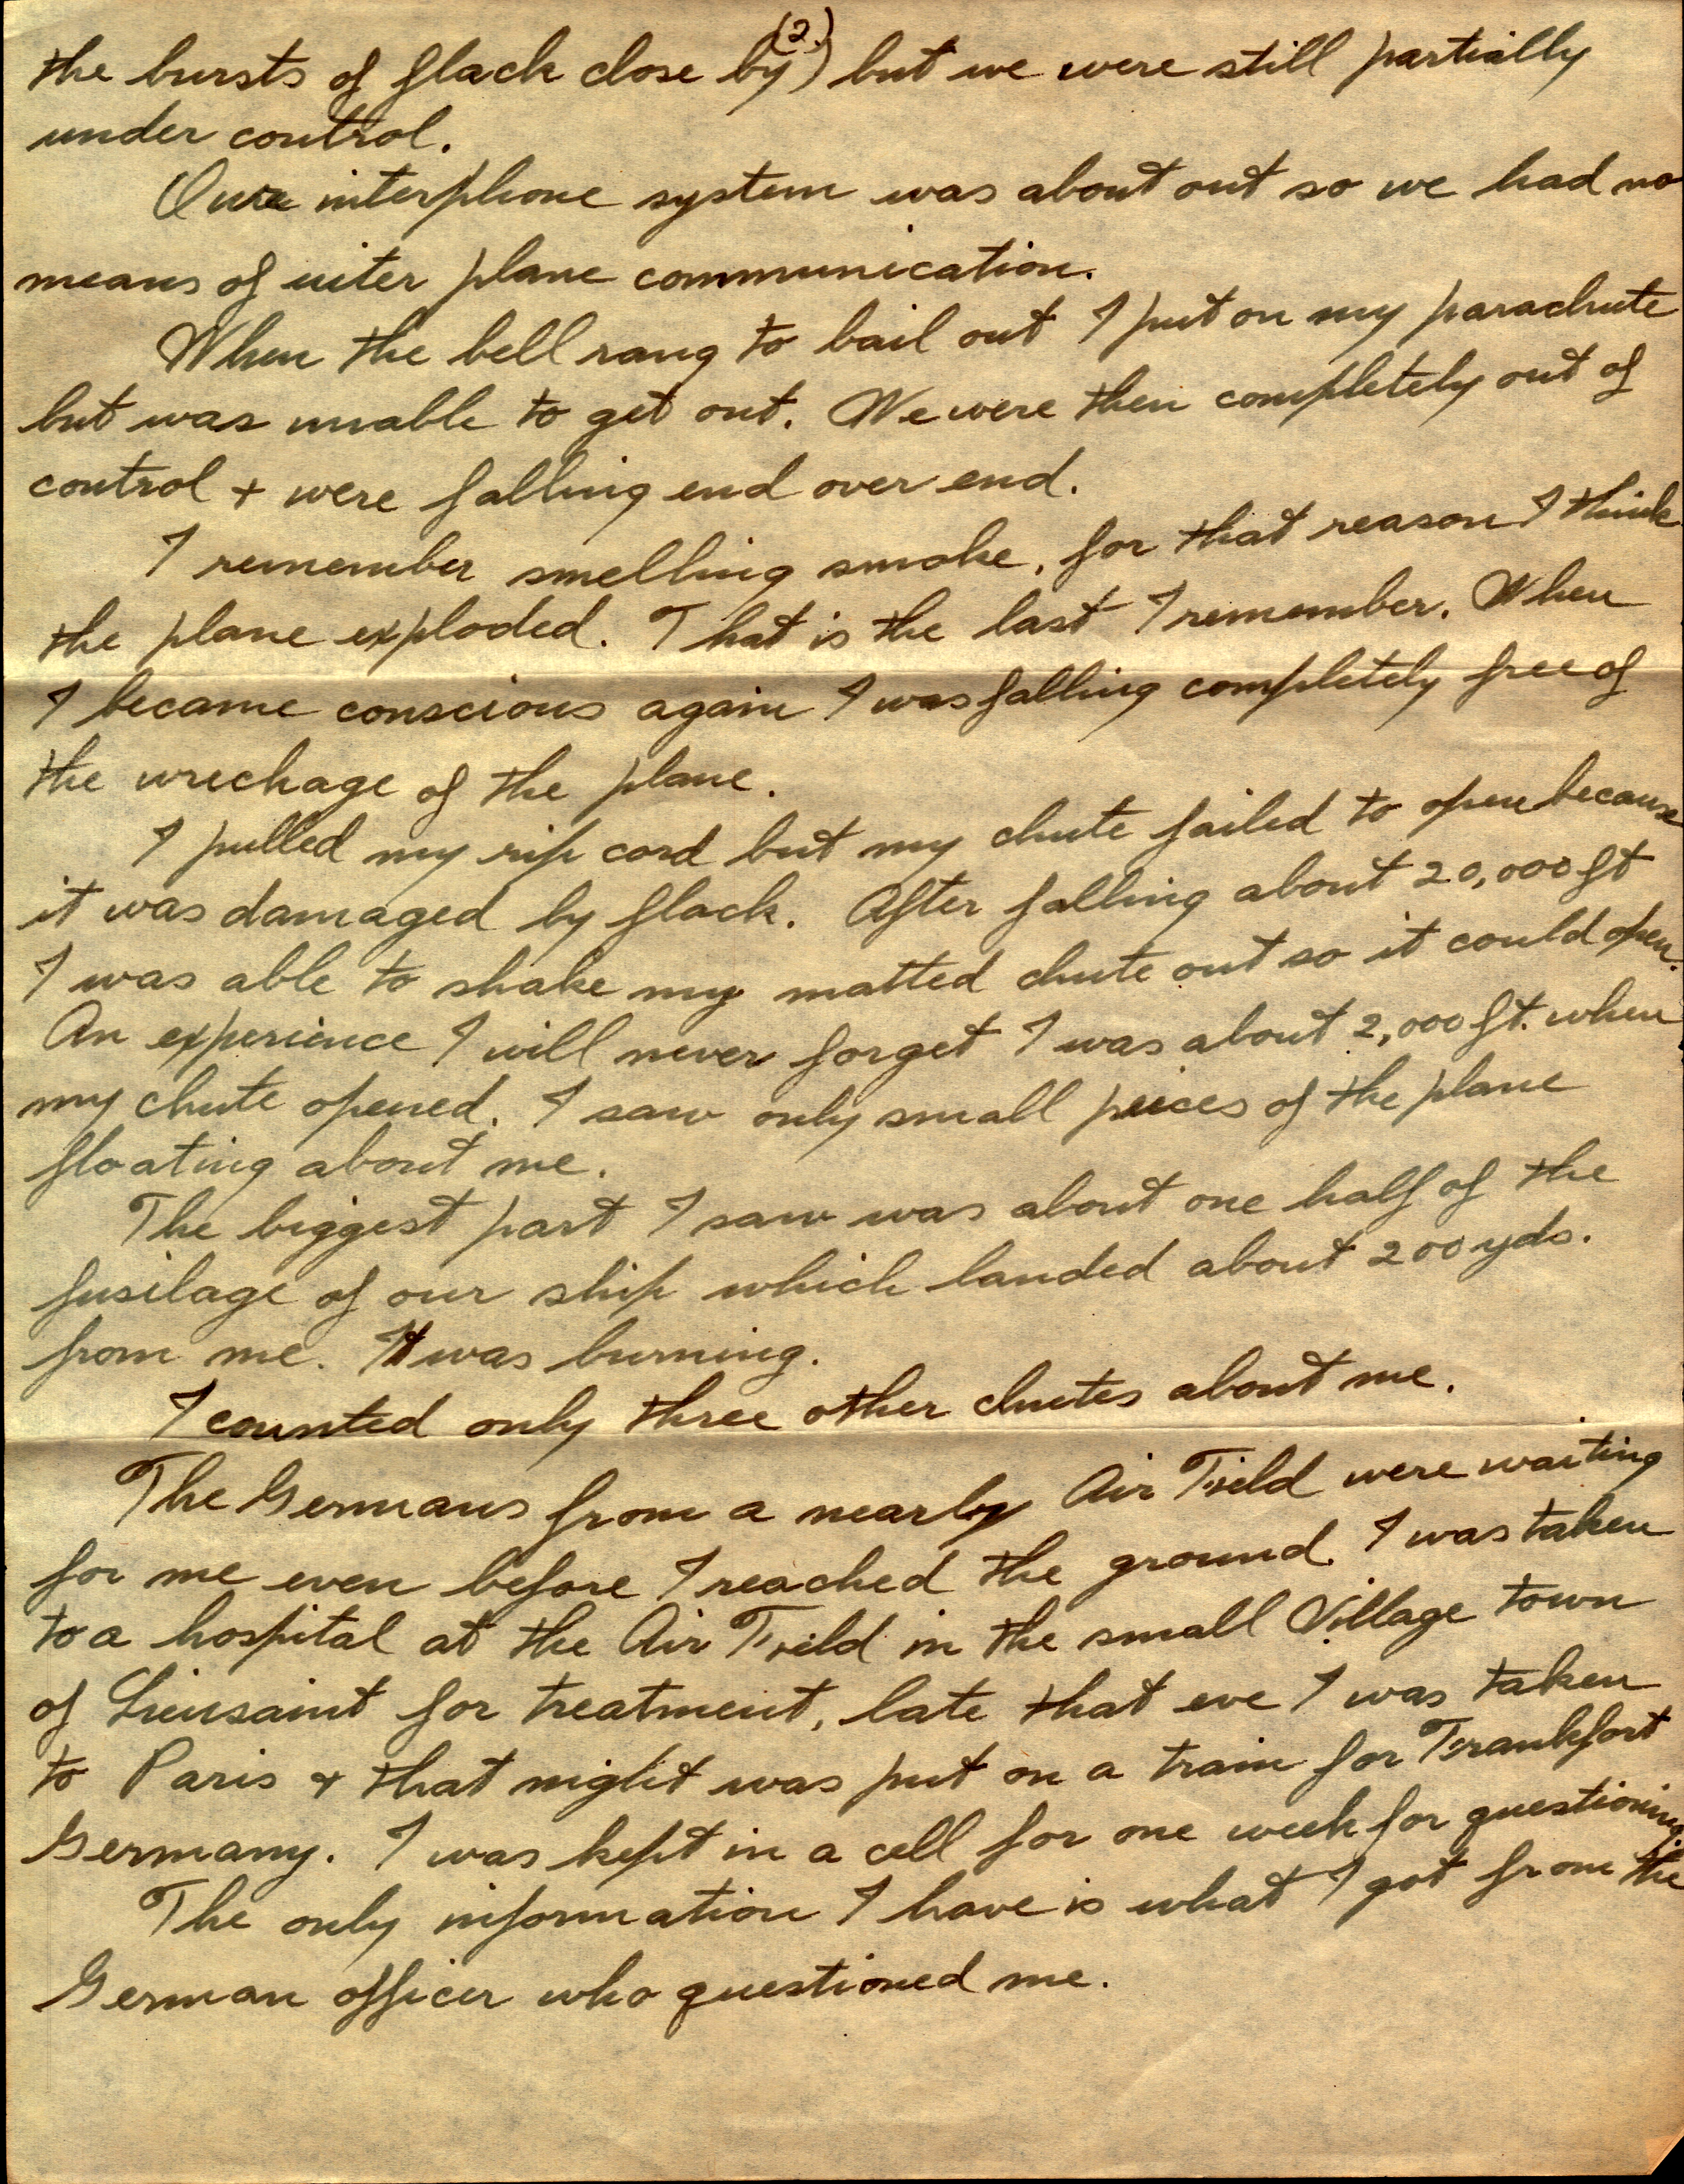 (2.)
the bursts of flack close by) but we were still partially
under control.
Our interphone system was about out so we had no
means of inter plane communication.
When the bell rang to bail out I put on my parachute
but was unable to get out. We were then completely out of
control + were falling end over end.
I remember smelling smoke, for that reason I think
the plane exploded. That is the last I remember. When
I became conscious again I was falling completely free of
the wreckage of the plane.
I pulled my rip cord but my chute failed to open because
it was damaged by flack. After falling about 20,000 ft
I was able to shake my matted chute out so it could open.
An experience I will never forget I was about 2,000 ft. when
my chute opened. I saw only small peices of the plane
floating about me.
The biggest part I saw was about one half of the
fusilage of our ship which landed about 200 yds.
from me. It was burning.
I counted only three other chutes about me.
The Germans from a nearby Air Field were waiting
for me even before I reached the ground. I was taken
to a hospital at the Air Field in the small Village town
of Lieusaint for treatment, late that eve I was taken
to Paris + that night was put on a train for Frankfort
Germany. I was kept in a cell for one week for questioning.
The only information I have is what I got from the
German officer who questioned me.